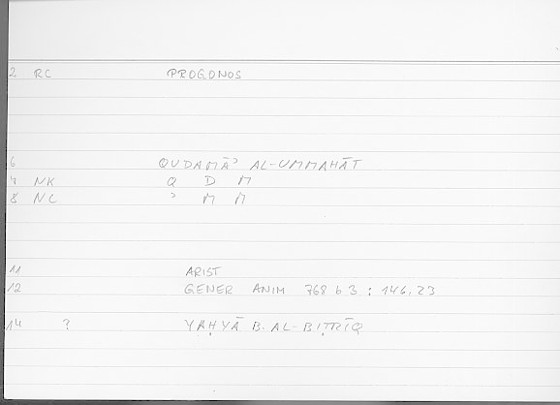 2 RC PROGONOS
6 QUDAMĀʾ AL-UMMAHĀT
7 NK Q D M
8 NC ʾ M M
11 ARIST
12 GENER ANIM 768 b 3 : 146,23
14 ? YAḤYĀ B. AL-BIṬRĪQ